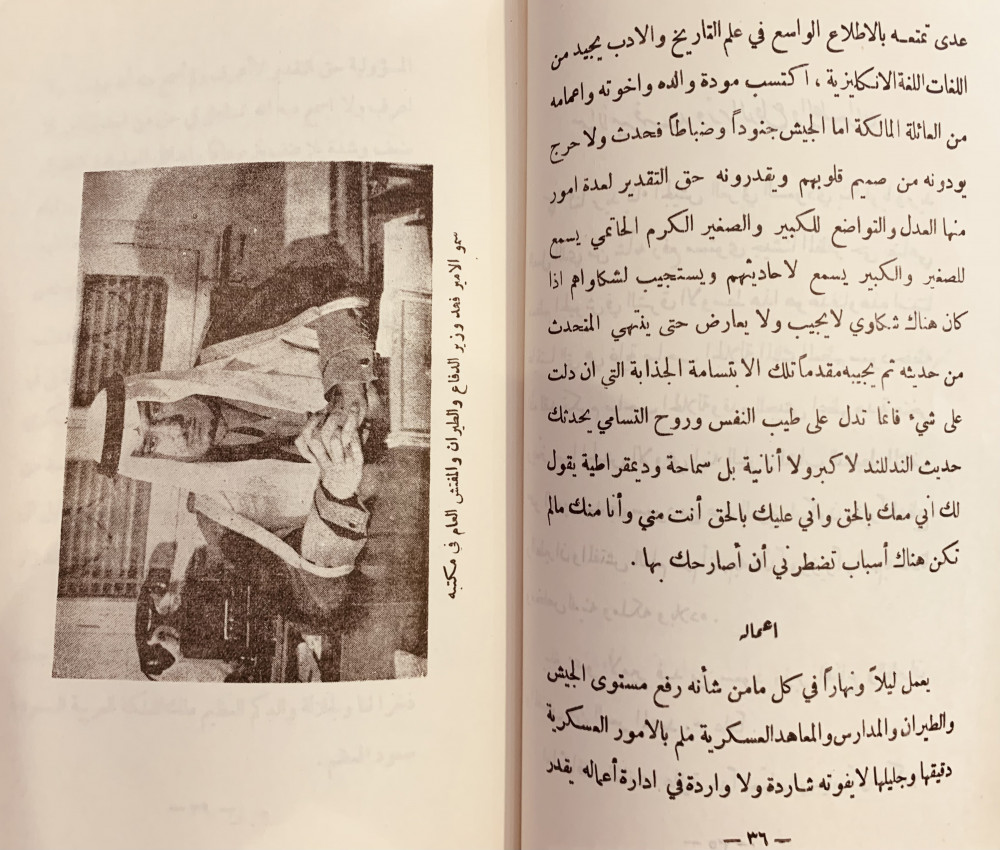 عدى تمتعه بالاطلاع الواسع في علم التاريخ والادب يجيد من
اللغات اللغة الانكليزية ، اكتسب مودة والده واخوته واعمامه
من العائلة المالكة اما الجيش جنوداً وضباطاً فحدث ولا حرج
يودونه من صميم قلوبهم ويقدرونه حق التقدير لعدة امور
منها العدل والتواضع للكبير والصغير الكرم الحاتمي يسمع
للصغير والكبير يسمع لاحاديثهم ويستجيب لشكواهم اذا
كان هناك شكاوي لايجيب ولا يعارض حتى ينتهي المتحدث
من حديثه ثم يجيبه مقدماً تلك الابتسامة الجذابة التي ان دلت
على شيء فانما تدل على طيب النفس وروح التسامي يحدثك
حديث الندللند لا كبر ولا أنانية بل سماحة وديمقراطية يقول
لك اني معك بالحق واني عليك بالحق أنت مني وأنا منك مالم
تكن هناك أسباب تضطرني أن أصارحك بها .
اعماله
يعمل ليلاً ونهاراً في كل مامن شأنه رفع مستوى الجيش
والطيران والمدارس والمعاهد العسكرية ملم بالامور العسكرية
دقيقها وجليلها لايفوته شاردة ولا واردة في ادارة أعماله يقدر
— ٣٦ —
سمو الامير فهد وزير الدفاع والطيران والمفتش العام في مكتبه